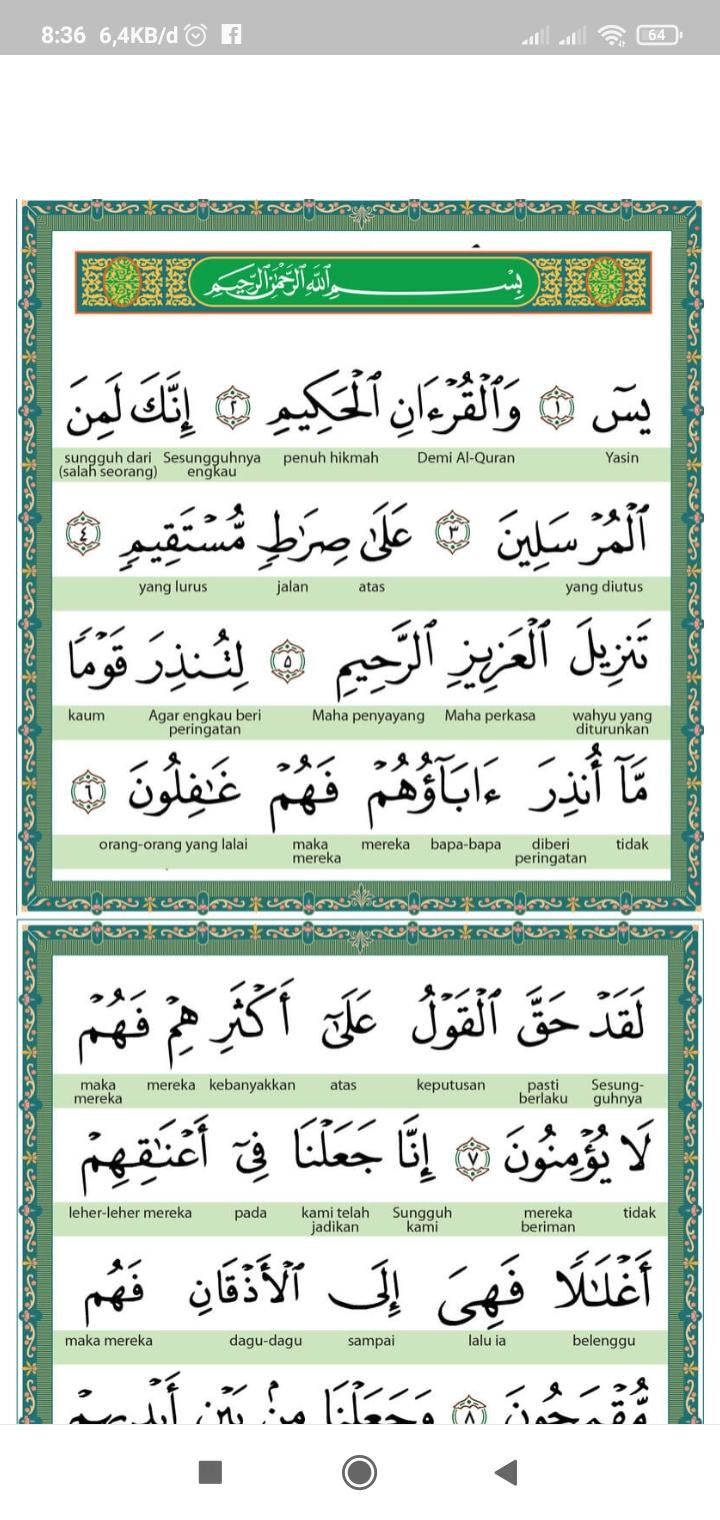 8:36 6,4KB/d
64
بِسْمِ اللَّهِ الرَّحْمَٰنِ الرَّحِيمِ
يسٓ ١ وَٱلْقُرْءَانِ ٱلْحَكِيمِ ٢ إِنَّكَ لَمِنَ
Yasin Demi Al-Quran penuh hikmah Sesungguhnya engkau sungguh dari (salah seorang)
ٱلْمُرْسَلِينَ ٣ عَلَىٰ صِرَٰطٍ مُّسْتَقِيمٍ ٤
yang diutus atas jalan yang lurus
تَنزِيلَ ٱلْعَزِيزِ ٱلرَّحِيمِ ٥ لِتُنذِرَ قَوْمًا
wahyu yang diturunkan Maha perkasa Maha penyayang Agar engkau beri peringatan kaum
مَّآ أُنذِرَ ءَابَآؤُهُمْ فَهُمْ غَٰفِلُونَ ٦
tidak diberi peringatan bapa-bapa mereka maka mereka orang-orang yang lalai
لَقَدْ حَقَّ ٱلْقَوْلُ عَلَىٰٓ أَكْثَرِهِمْ فَهُمْ
Sesung-guhnya pasti berlaku keputusan atas kebanyakkan mereka maka mereka
لَا يُؤْمِنُونَ ٧ إِنَّا جَعَلْنَا فِىٓ أَعْنَٰقِهِمْ
tidak mereka beriman Sungguh kami kami telah jadikan pada leher-leher mereka
أَغْلَٰلًا فَهِىَ إِلَى ٱلْأَذْقَانِ فَهُم
belenggu lalu ia sampai dagu-dagu maka mereka
مُّقْمَحُونَ ٨ وَجَعَلْنَا مِنۢ بَيْنِ أَيْدِيهِمْ